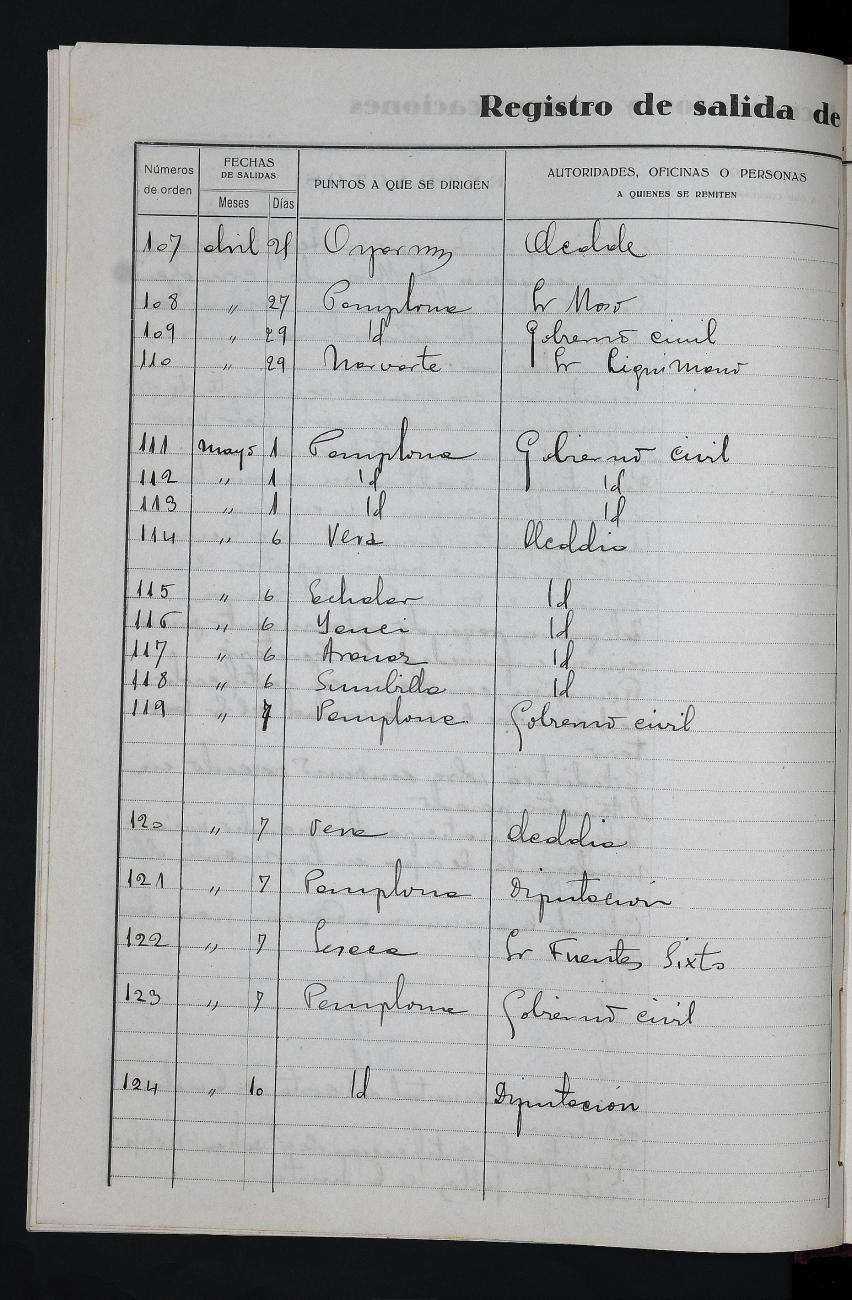 Registro de salida de
Números de orden FECHAS DE SALIDAS Meses Días PUNTOS A QUE SE DIRIGEN AUTORIDADES, OFICINAS O PERSONAS A QUIENES SE REMITEN
107 abril Oyarzun Alcalde
108 " 27 Pamplona Sr
109 " 29 Id Gobierno civil
110 " 29 Narvarte Sr
111 mayo 1 Pamplona Gobierno civil
112 " 1 Id Id
113 " 1 Id Id
114 " 6 Vera Alcaldia
115 " 6 Echalar Id
116 " 6 Yanci Id
117 " 6 Aranaz Id
118 " 6 Sumbilla Id
119 " 7 Pamplona Gobierno civil
120 " 7 Vera alcaldia
121 " 7 Pamplona Diputacion
122 " 7 Lesaca Sr Fuentes Sixto
123 " 7 Pamplona Gobierno civil
124 " 10 Id Diputación